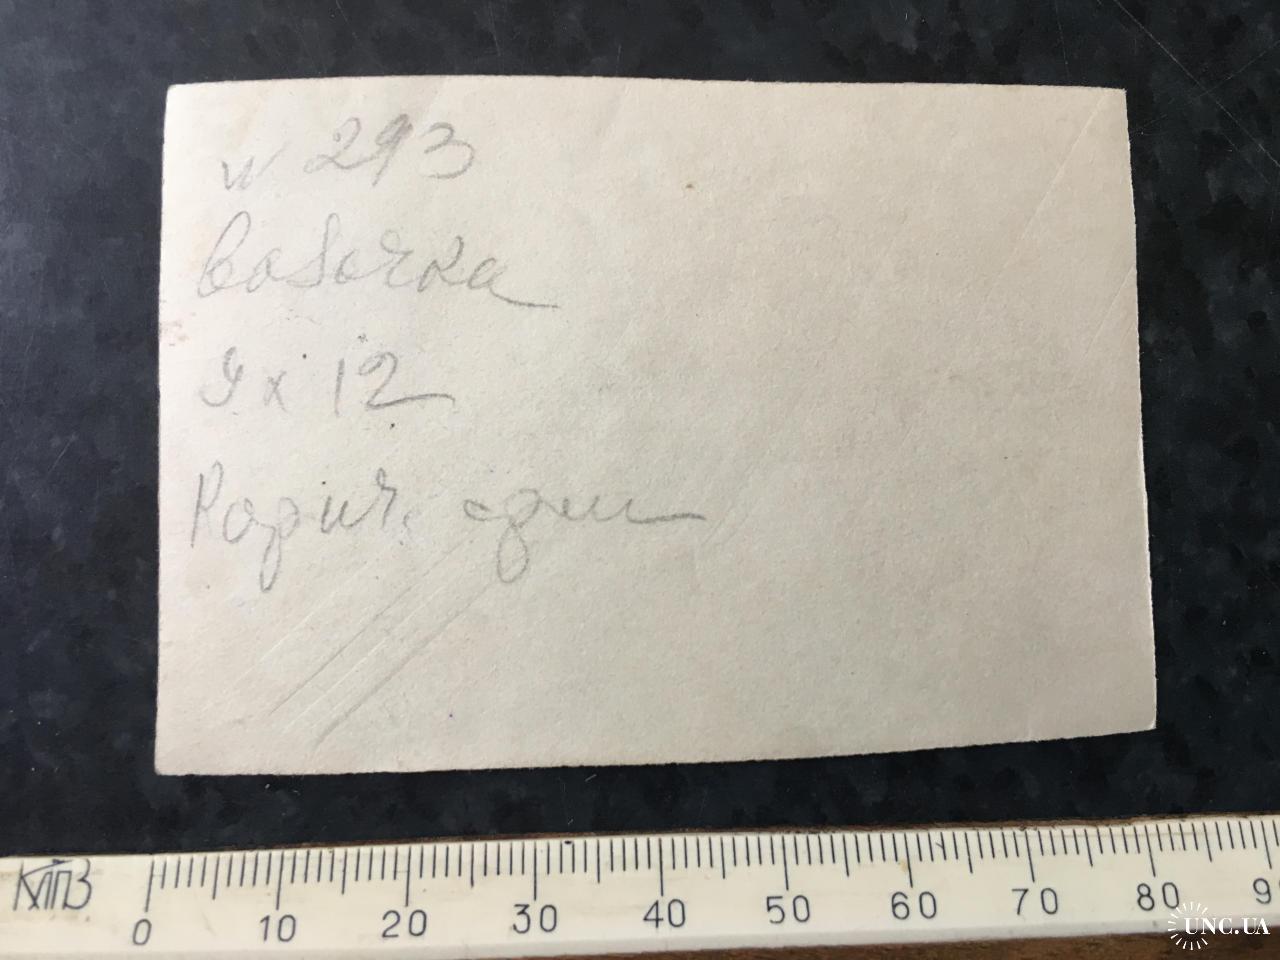 N 293
бабочка
9 x 12
Корич.
КЛПЗ
0 10 20 30 40 50 60 70 80 90
UNC.UA